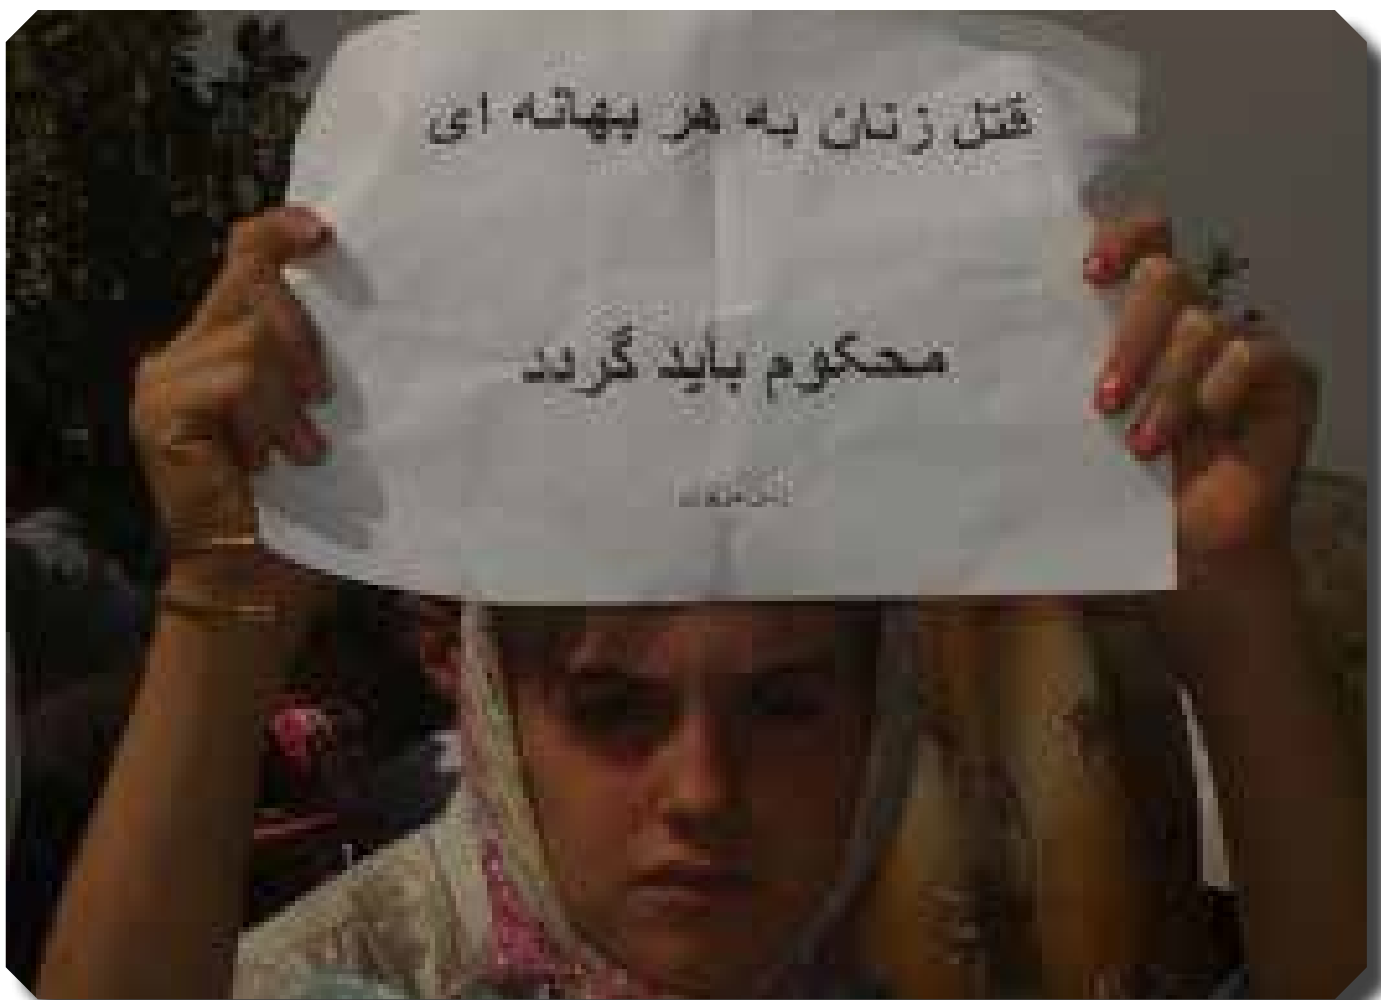 قتل زنان به هر بهانه ای
محکوم باید گردد